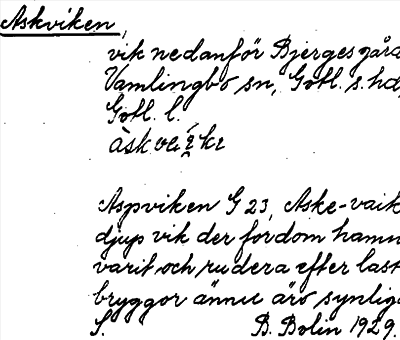 Askviken,
vik nedanför Bjerges gård
Vamlingbo sn, Gotl. s. hd,
Gotl. l.
Aspviken G 23, Aske-vaik
djup vik der fordom hamn
varit och rudera efter last
bryggor ännu äro synliga
S. B. Bolin 1929.